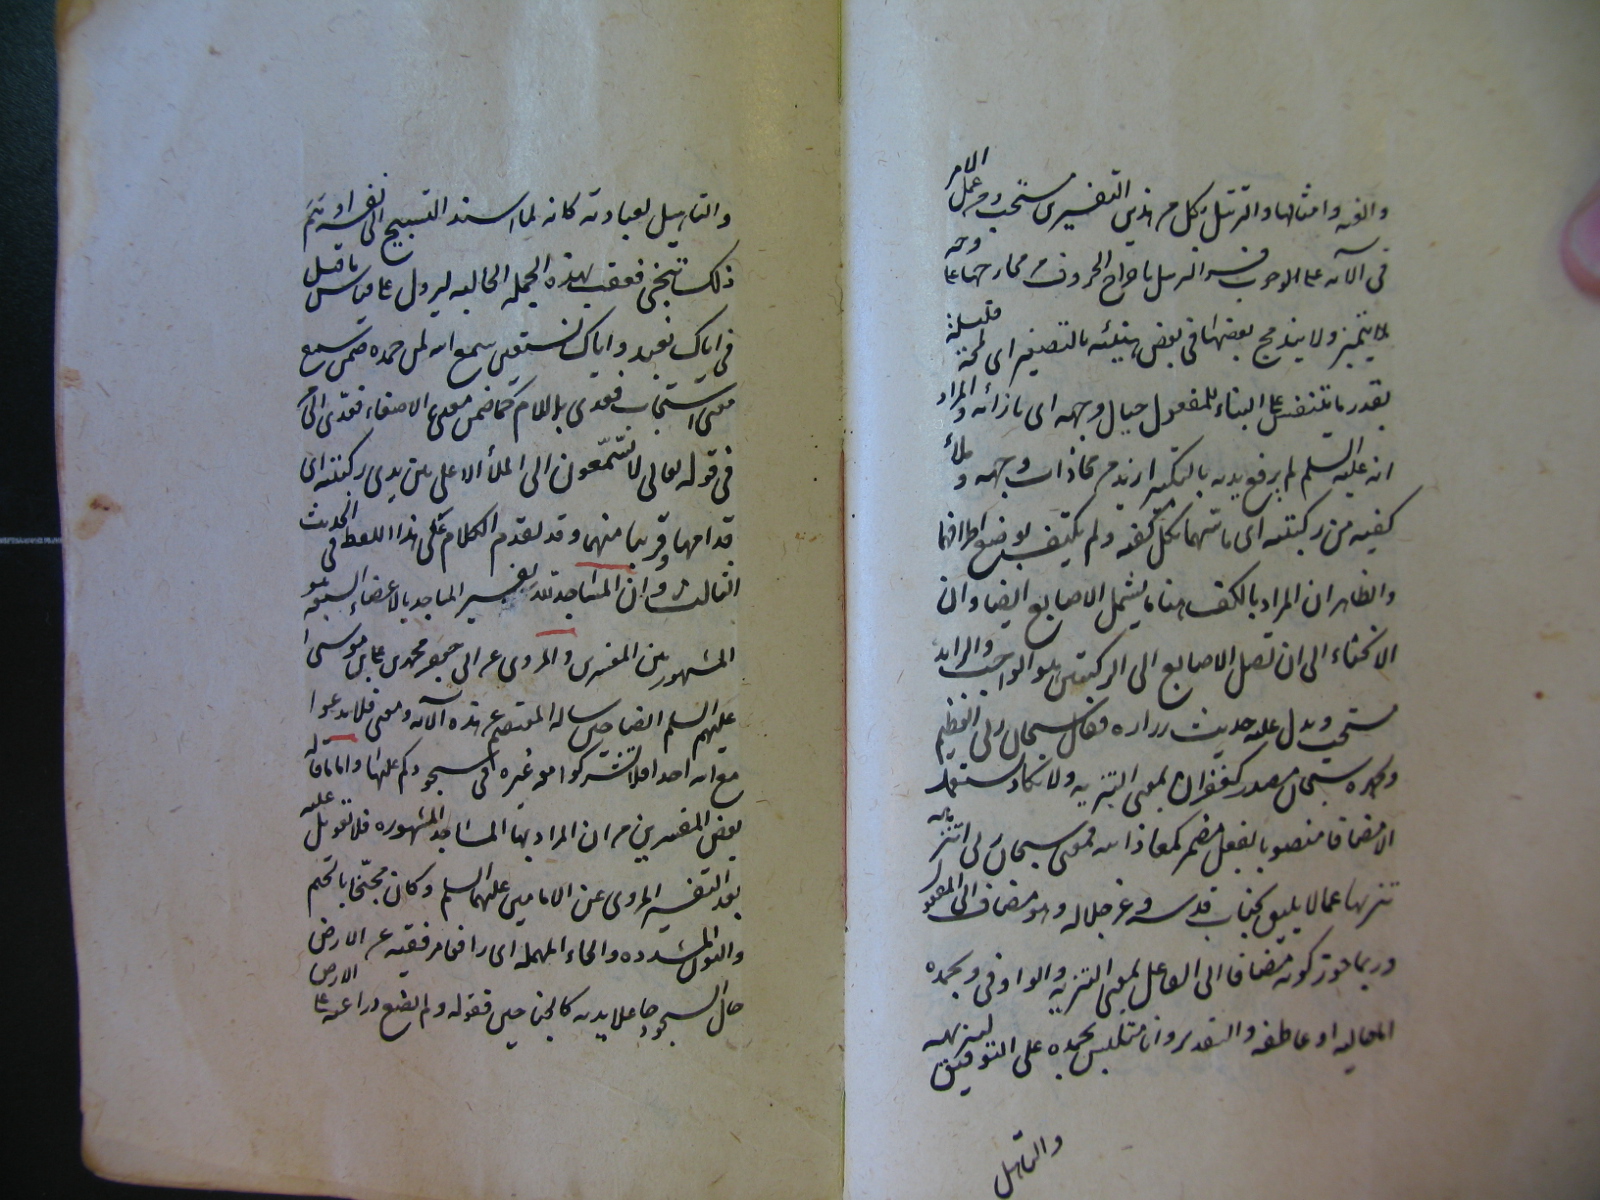 والغنه وامثالها والترتيل بكل من هذين التفسيرين مستحب ومن حمل الامر
في الآية على الوجوب فسر الترتيل باخراج الحروف من مخارجها على وجه
يتميز ولا يندمج بعضها في بعض هنيئه بالتصغير اى لحظة قليلة
بقدر ما يتنفس على البناء للمفعول حيال وجهه اى بازائه والمراد
انه عليه السلم لم يرفع يديه بالتكبير ازيد من محاذات وجهه وملأ
كفيه من ركبتيه اى ماسهما بكل كفيه ولم يكتف بوضع اطرافهما
والظاهر ان المراد بالكف هنا ما يشمل الاصابع ايضا وان
الانحناء الى ان تصل الاصابع الى الركبتين هو الواجب والزايد
مستحب ويدل عليه حديث زراره فقال سبحان ربى العظيم
وبحمده سبحان مصدر كغفران بمعنى التنزيه ولا يكاد يستعمل
الا مضافا منصوبا بفعل مضمر كمعاذ الله فمعنى سبحان ربى انزه
تنزيها عما لا يليق بجناب قدسه وعز جلاله وهو مضاف الى المفعول
وربما جوز كونه مضافا الى الفاعل بمعنى التنزه والواو في وبحمده
اما حاليه او عاطفه والتقدير وانا متلبس بحمده على التوفيق لتنزيهه
والتاهيل
والتاهيل لعبادته كانه لما اسند التسبيح الى نفسه اوهم
ذلك تبجحا فعقب بهذه الجملة الحاليه ليزول على قياس ما قيل
في اياك نعبد واياك نستعين سمع الله لمن حمده ضمن سمع
معنى استجاب فعدى باللام كما ضمن معنى الاصغاء فعدى الى
في قوله تعالى لا يسّمّعون الى الملأ الاعلى بين يدى ركبتيه اى
قدامهما وقريبا منهما وقد تقدم الكلام على هذا اللفظ في الحديث
الثالث وان المساجد لله تفسير المساجد بالاعضاء السبعة هو
المشهور بين المفسرين والمروى عن ابى جعفر محمد بن على بن موسى
عليهم السلم ايضا حين ساله المعتصم عن هذه الآية ومعنى فلا تدعوا
مع الله احدا فلا تشركوا معه غيره في سجودكم عليها واما ما قاله
بعض المفسرين من ان المراد بها المساجد المشهوره فلا تعويل عليه
بعد التفسير المروى عن الامامين عليهما السلم وكان مجنحا بالجيم
والنون المشدده والحاء المهمله اى رافعا مرفقيه عن الارض
حال السجود جاعلا يديه كالجناحين فقوله ولم يضع ذراعيه على الارض